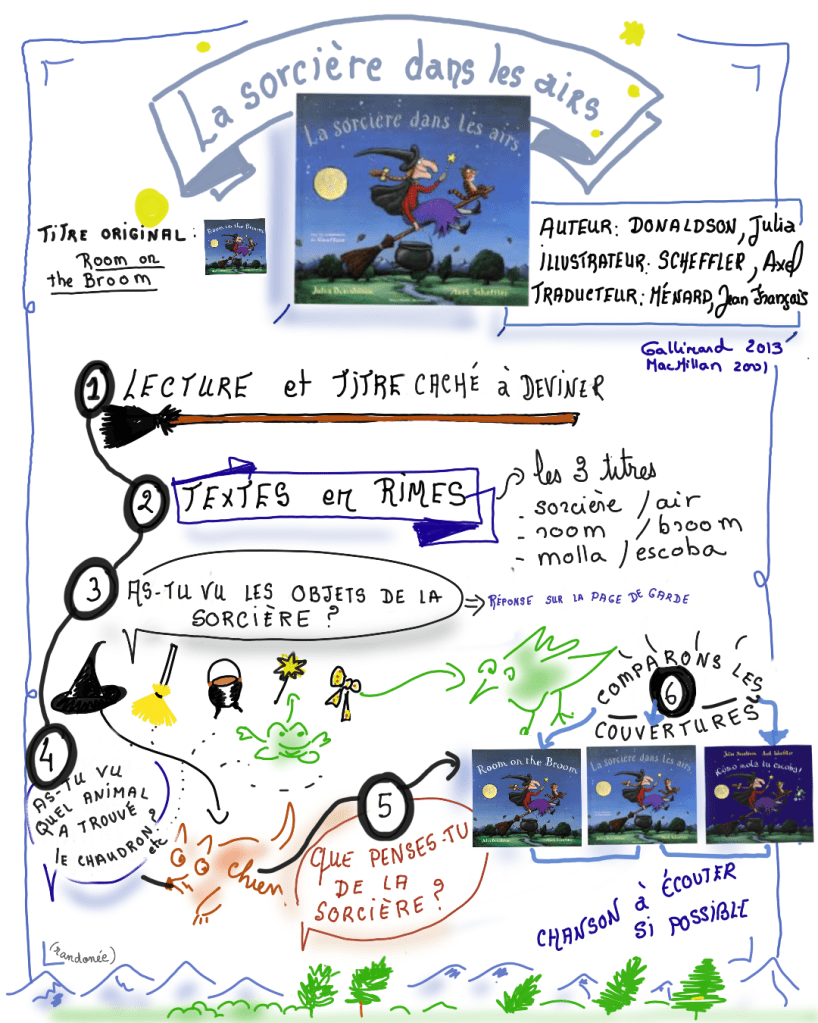 La sorcière dans les airs
La sorcière dans les airs
Julia Donaldson Axel Scheffler
TITRE ORIGINAL:
Room on
the Broom
Room on the Broom
AUTEUR: DONALDSON, Julia
ILLUSTRATEUR: SCHEFFLER, Axel
TRADUCTEUR: MÉNARD, Jean François
Gallimard 2013
MacMillan 2001
1 LECTURE et TITRE CACHÉ à DEVINER
2 TEXTES en RIMES
les 3 titres
- sorcière / air
- room / broom
- molla / escoba
3 AS-TU VU LES OBJETS DE LA
SORCIÈRE ?
⇒ RÉPONSE SUR LA PAGE DE GARDE
4
AS-TU VU
QUEL ANIMAL
A TROUVÉ
le CHAUDRON ?
etc
chien.
5
QUE PENSES-TU
DE LA
SORCIÈRE ?
COMPARONS LES
6
COUVERTURES
Room on the Broom
Julia Donaldson Axel Scheffler
La sorcière dans les airs
Julia Donaldson Axel Scheffler
¡Cómo mola tu escoba!
CHANSON à ÉCOUTER
SI POSSIBLE
(randonée)